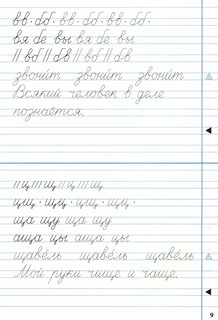 вв · бб · вв · бб · вв · бб ·
вя бе вы вя бе вы
|| вб || бв || вб || бв
звони́т звони́т звони́т
Всякий человек в деле
познаётся.
цщ · цщ · цщ · цщ ·
ща щу ща щу
аща цы аща цы
щаве́ль щаве́ль щаве́ль
Мой руки чище и чаще.
9